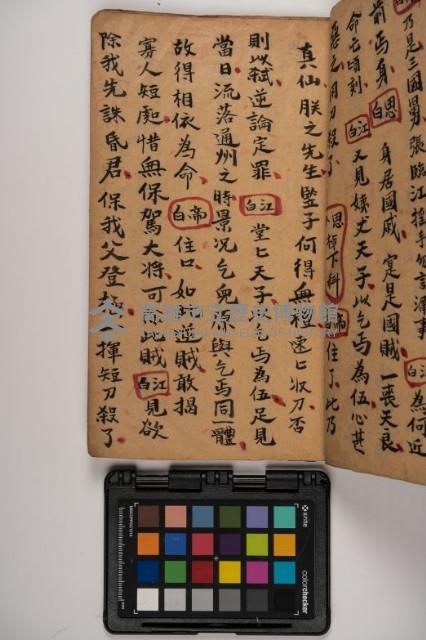 乃是三國舅張臨江
為何近
前丐身
思白
身居國戚
定是國賊一喪天良
命亡頃刻
江白
又見
天子以乞丐為伍心甚
思
下科
帝
住了此乃
真仙朕之先生豎子何得無禮速匕収刀否
則以弒逆論定罪
江白
堂匕天子
丐為伍足見
當日流落通州之時景况乞兒
與乞丐同一體
故得相依為命
帝白
住口如
逆賊敢揭
寡人短處惜無保駕大將可
此賊
江白
見欲
除我先誅昏君保我父登極
揮短刀殺了
高雄市立歷史博物館
x-rite
colorchecker